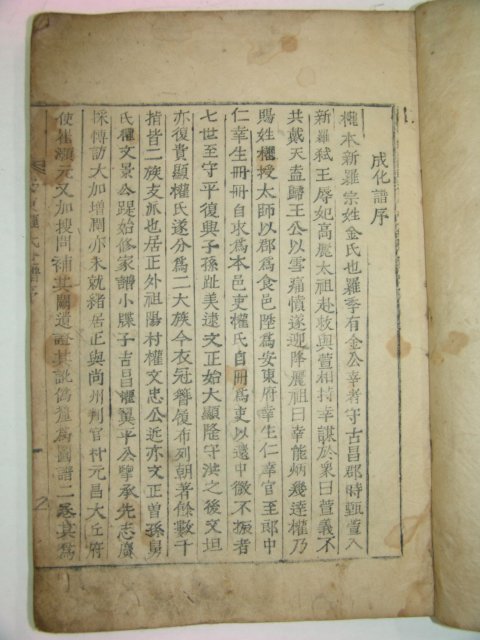 成化譜序
權本新羅宗姓金氏也羅季有金公幸者守古昌郡時甄萱入
新羅弑王辱妃高麗太祖赴救與萱相持幸謀於衆曰萱義不
共戴天盍歸王公以雪痛憤遂迎降麗祖曰幸能炳幾達權乃
賜姓權授太師以郡爲食邑陞爲安東府幸生仁幸官至郎中
仁幸生冊冊自求爲本邑吏權氏自冊爲吏以還中微不振者
七世至守平復興子孫趾美逮文正始大顯隆守洪之後文坦
亦復貴顯權氏遂分爲二大族今衣冠簪履布列朝著餘數十
指皆二族支派也居正外祖陽村權文忠公近亦文正曽孫舅
氏權文景公踶始修家譜小牒子吉昌權翼平公擥承先志廣
採博訪大加増閏亦未就緒居正與尚州判官朴元昌大丘府
使崔灝元又加搜問補其闕遺證其訛僞䆁爲圖譜二丞其爲